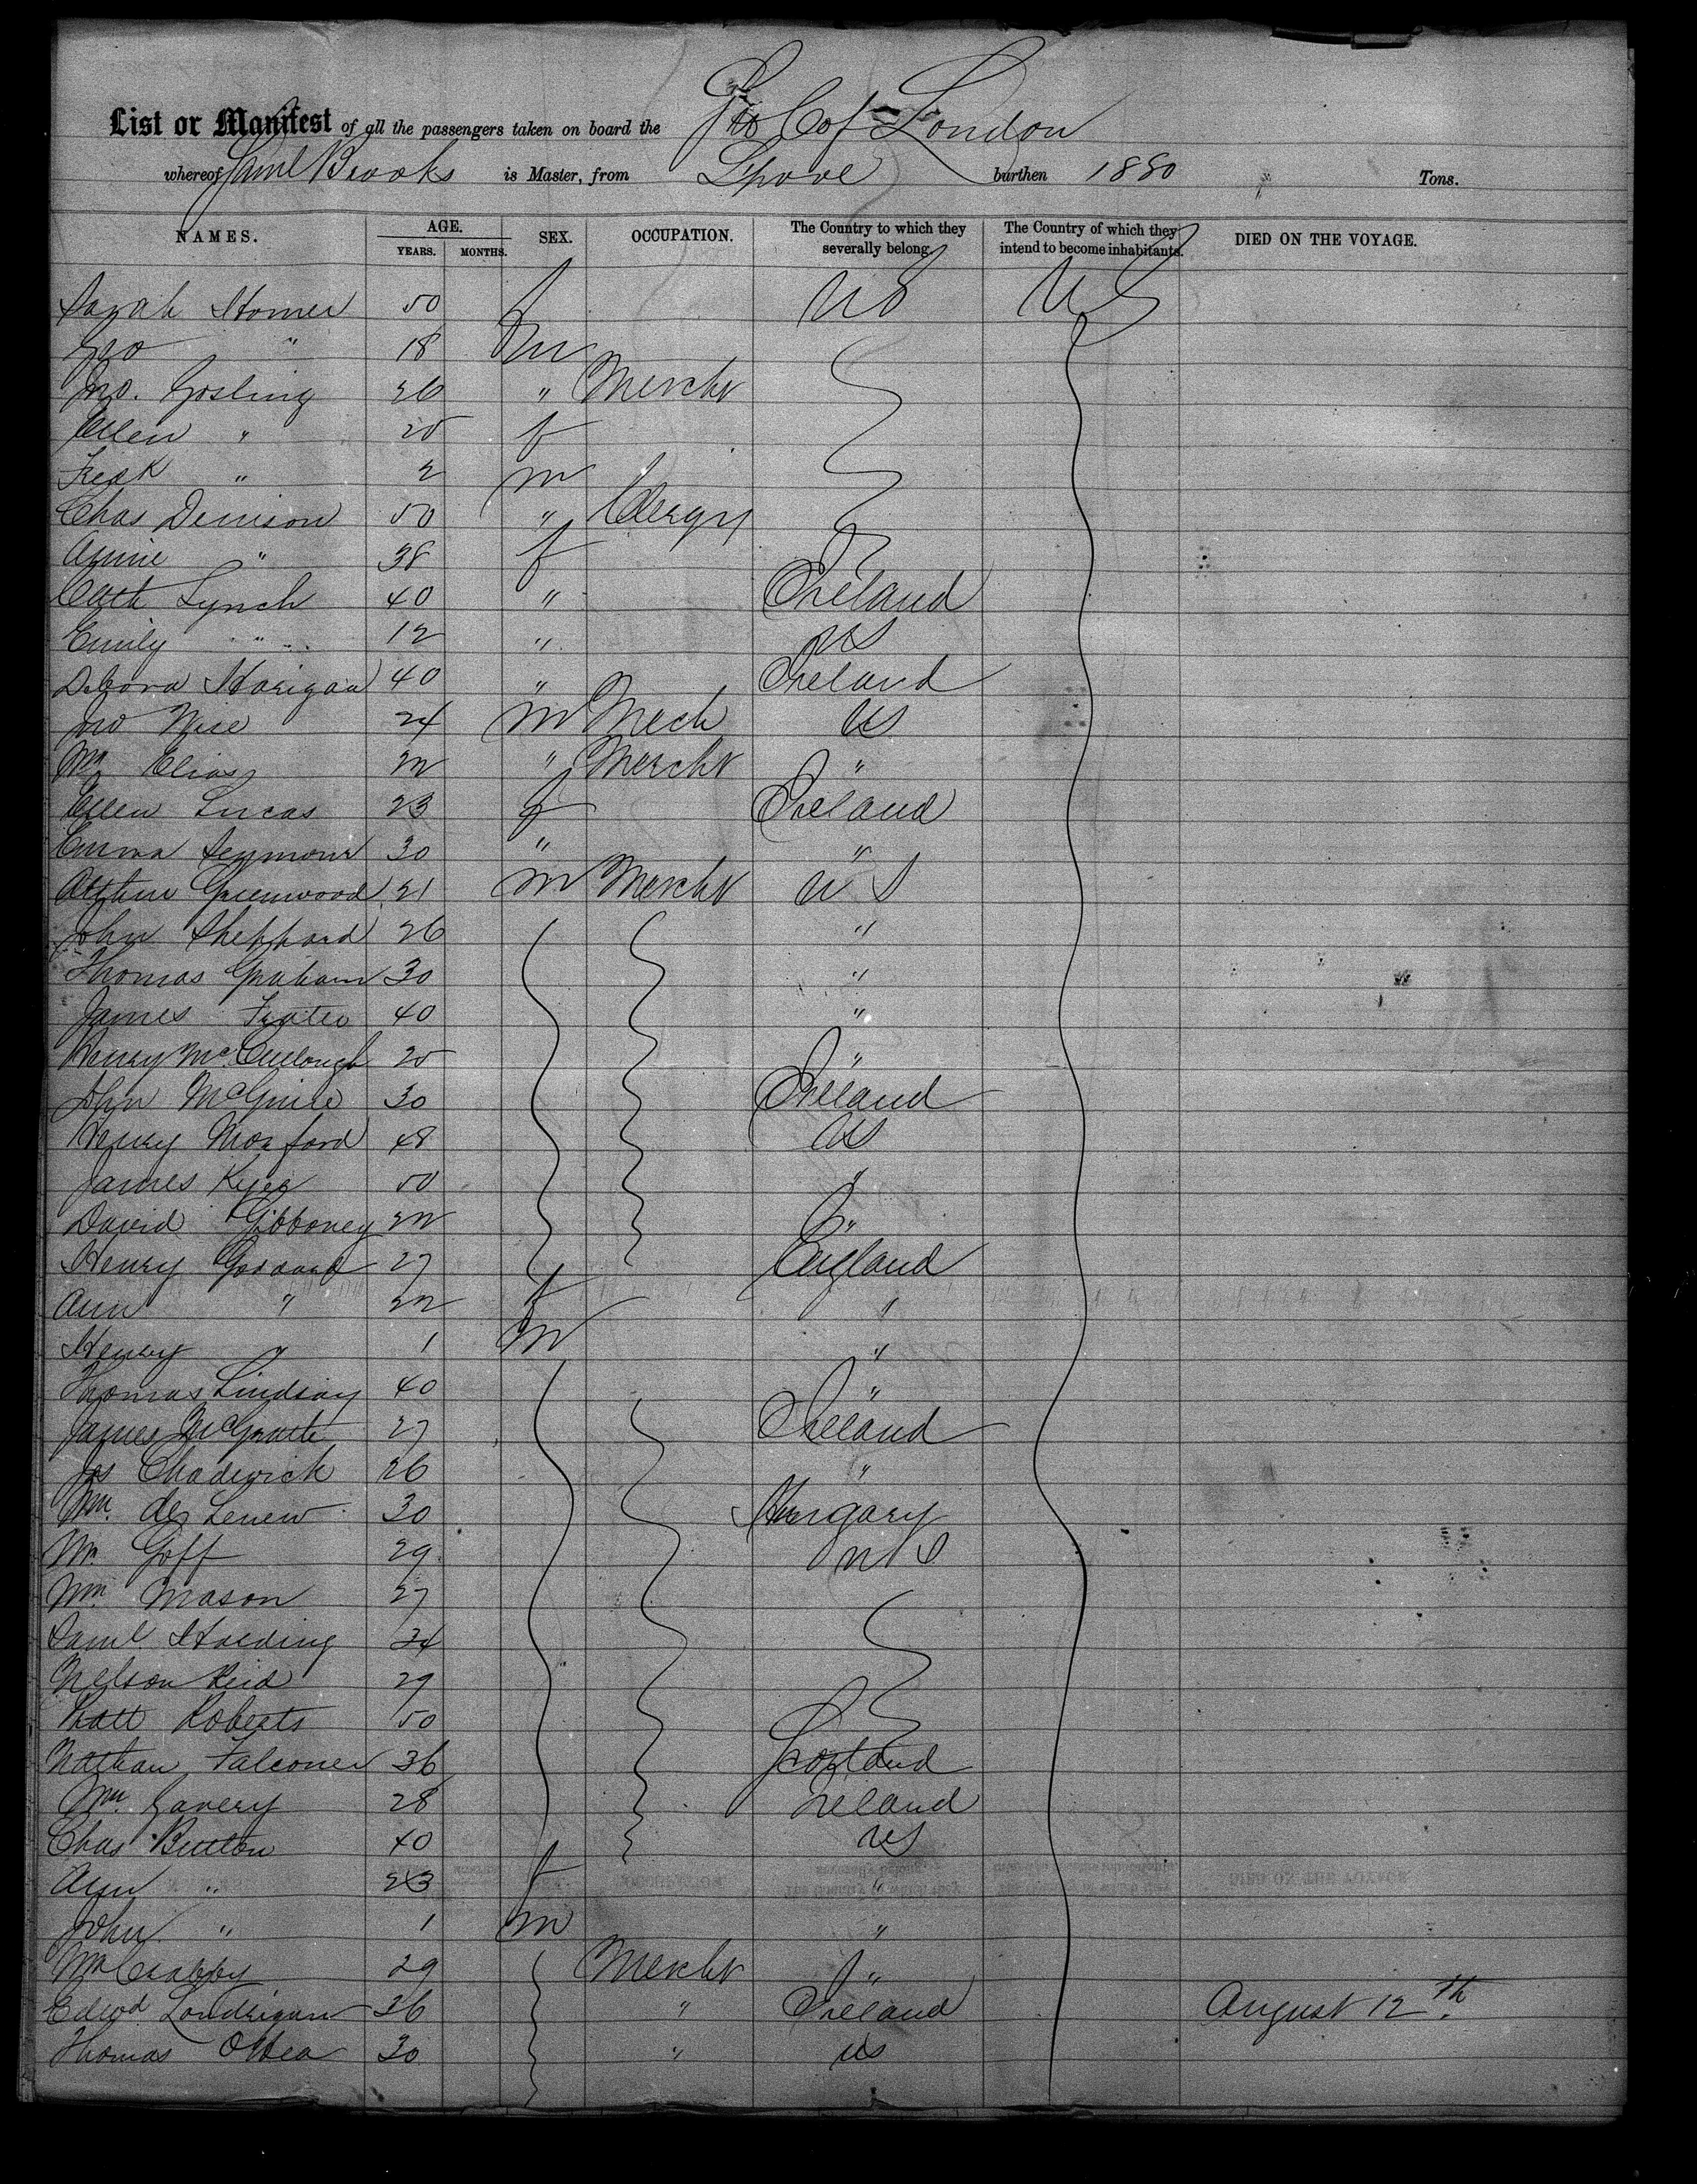 List or Manifest of all the passengers taken on board the C of London
whereof Saml Brooks is Master, from Lpool burthen 1880 Tons.
NAMES. AGE. YEARS. MONTHS. SEX. OCCUPATION. The Country to which they severally belong The Country of which they intend to become inhabitants. DIED ON THE VOYAGE.
Sarah Homer 50 f US US
Geo " 18 m
Jno. Gosling 26 " Mercht
Ellen " 25 f
Fredk " 2 m
Chas Denison 50 " Clergy
Annie " 38 f
Cath Lynch 40 " Ireland
Emily " 12 " US
Debora Harigan 40 " Ireland
Jno Nice 24 m Mech US
Wm Elias 22 " Mercht "
Ellen Lucas 23 f Ireland
Emma Seymour 30 " "
Arthur Greenwood 21 m Mercht U S
John Sheppard 26 "
Thomas Graham 30 "
James 40 "
Henry McCullough 25 "
John McGuire 30 Ireland
Henry Morford 48 US
James 50 "
David Gibboney 22 "
Henry Goddard 27 England
Ann " 22 f "
Henry " 1 m "
Thomas Lindsay 40 "
James McGrath 27 Ireland
Jos Chadwick 26 "
Wm. de 30 Hungary
Wm. Goff 29 U S
Wm. Mason 27
Saml Harding 34
Nelson Reid 29
Matt Roberts 50
Nathan Falconer 36 Scotland
Wm. 28 Ireland
Chas Button 40 US
Ann " 23 f "
John " 1 m "
Wm Crabby 29 Mercht "
Edwd. Londrigan 36 " Ireland August 12th.
Thomas OHea 30 " US